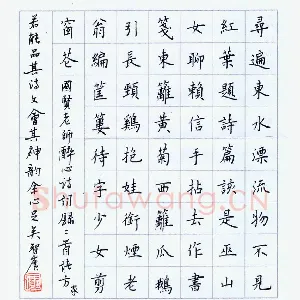 尋遍東水漂流物不見
紅葉題詩篇該是巫山
女聊賴信手拈去作書
箋東籬黃菊西籬瓜鵝
引長頸鷄抱娃銜煙老
翁編筐簍待字少女剪
窗花
國賢老師醉心詩詞錄二首請方家
若能品其詩文會其神韻余心足矣
Shufawang.cn